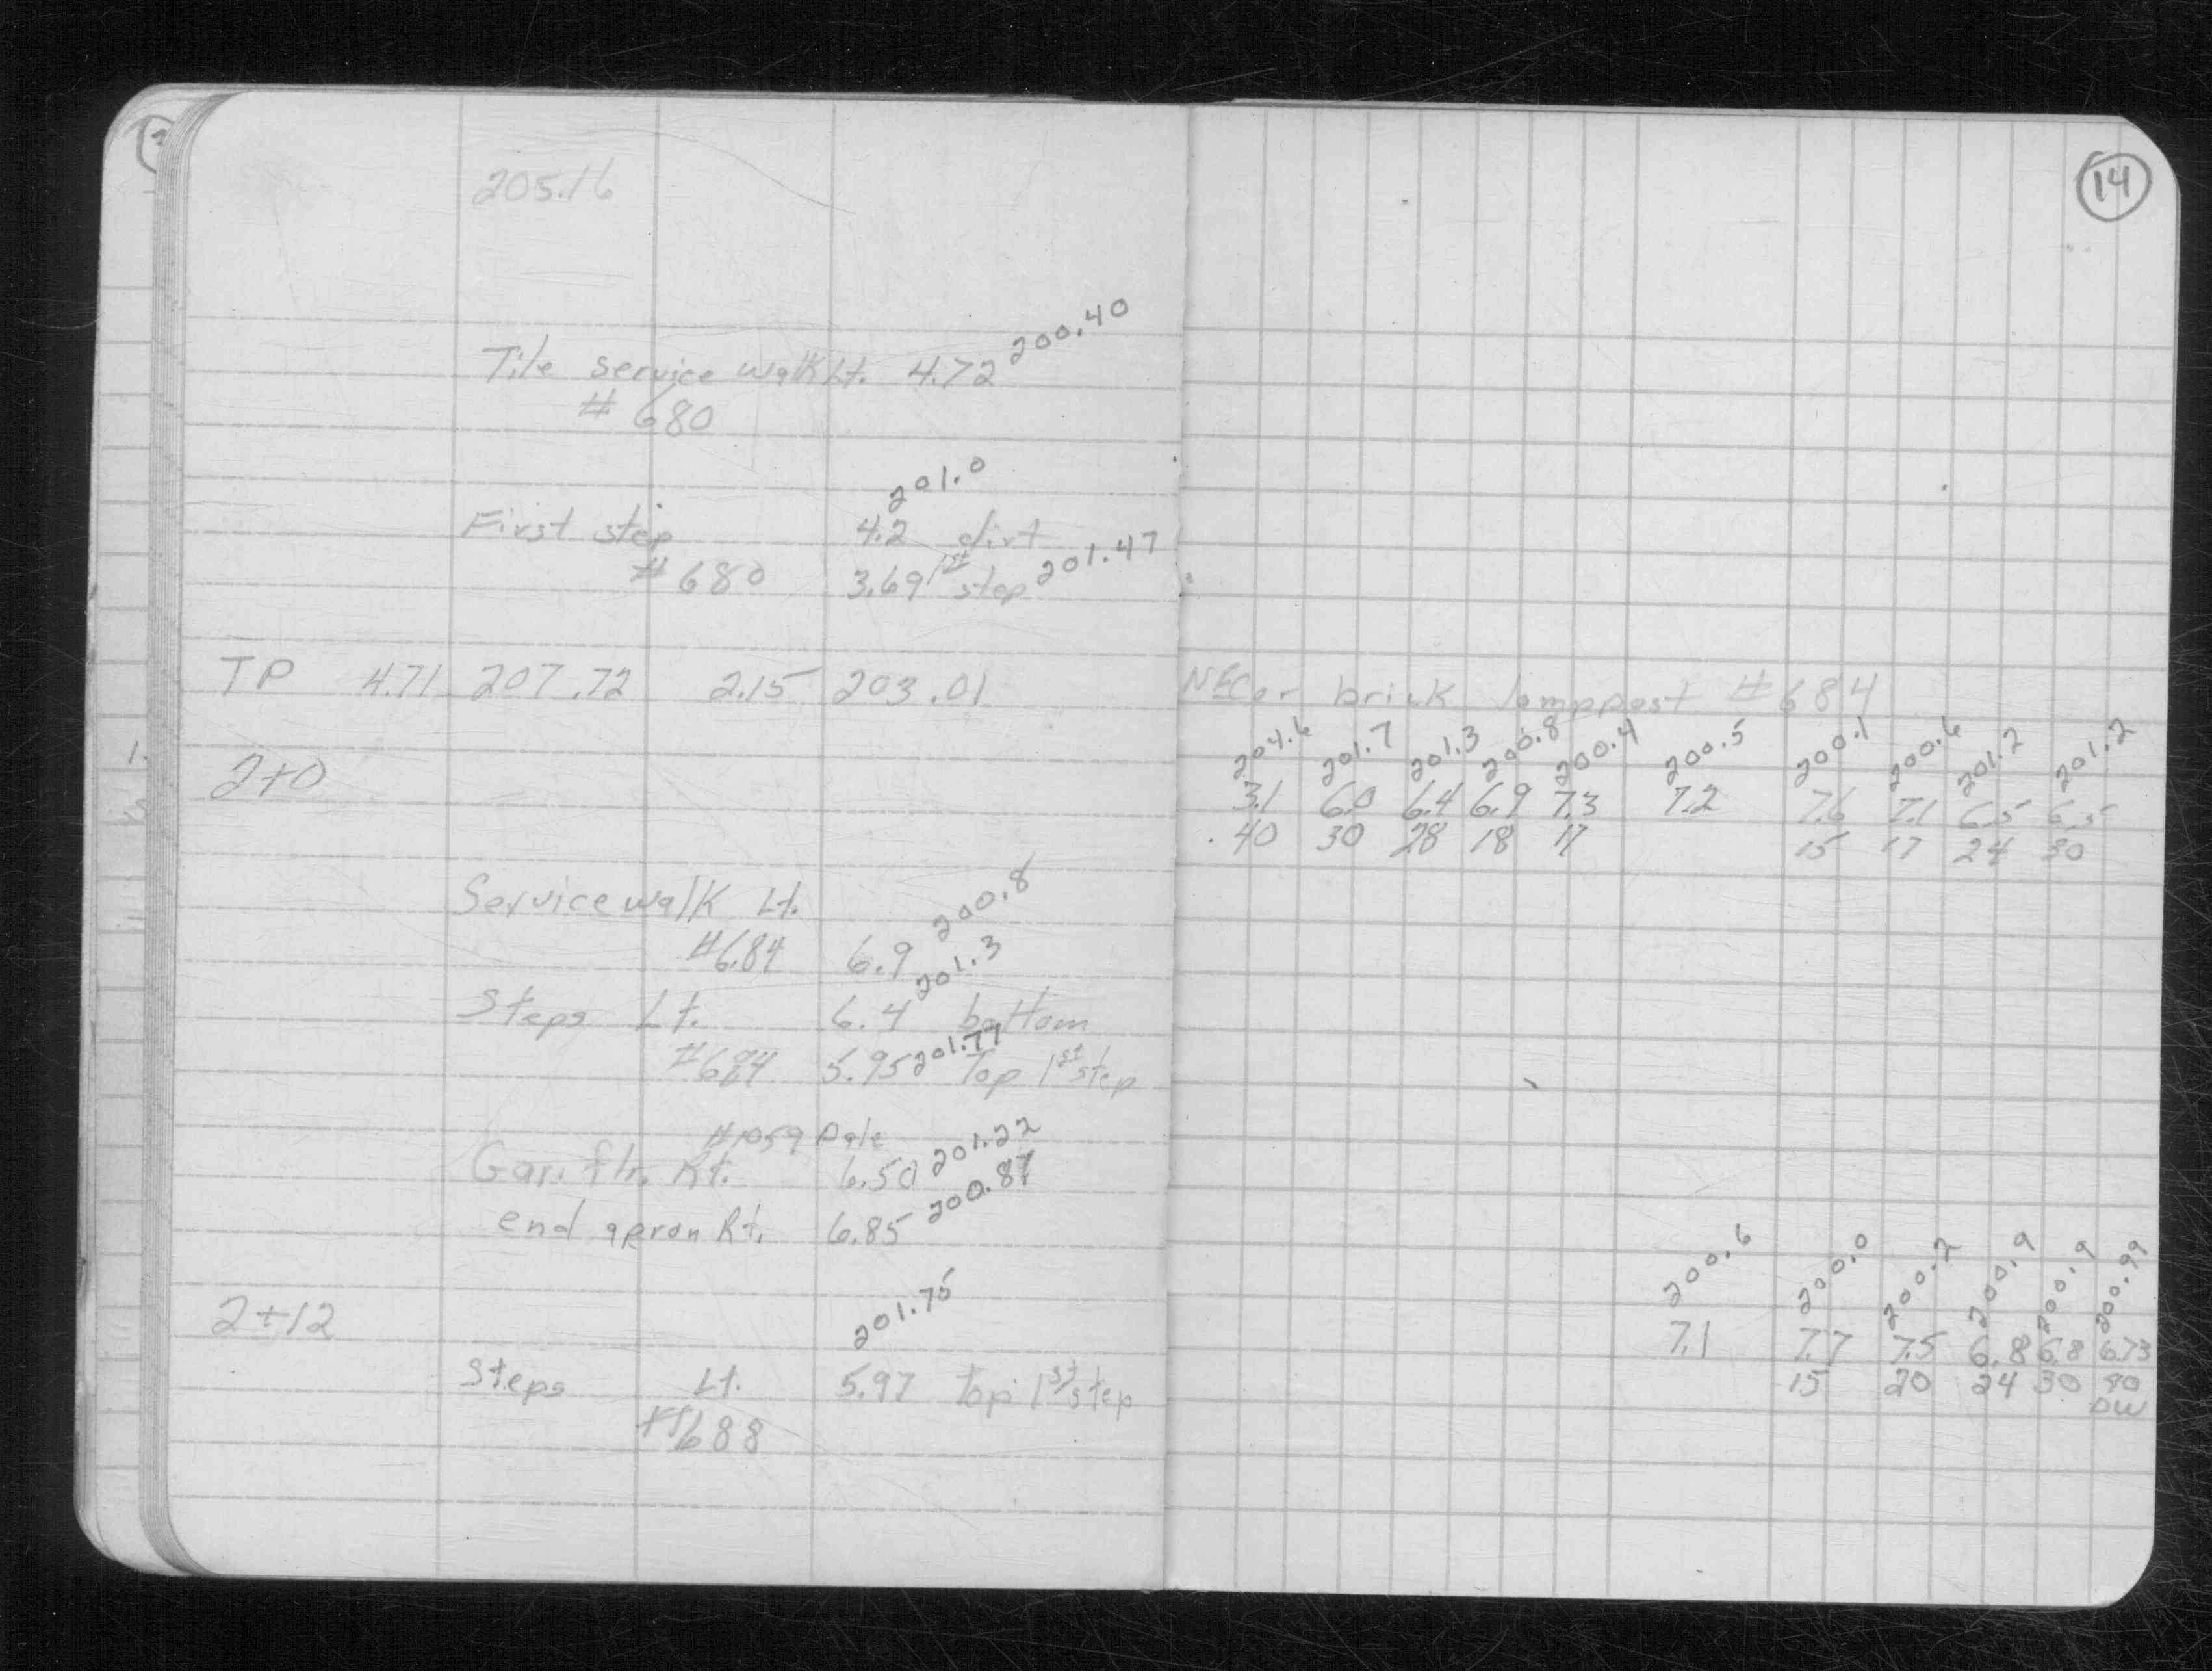 14
205.16
200.40
Tile service walk Lt. 4.72
# 680
201.0
First step 4.2 dirt
# 680 3.69 1st step 201.47
TP 4.71 207.72 2.15 203.01 NE Cor brick lamppost # 684
204.6 201.7 201.3 200.8 200.4 200.5 200.1 200.6 201.2 201.2
2+0 3.1 6.0 6.4 6.9 7.3 7.2 7.6 7.1 6.5 6.5
40 30 28 18 17 15 17 24 30
Service walk Lt. 200.8
#684 6.9
201.3
Steps Lt. 6.4 bottom
#684 5.95 201.77 Top 1st step
#1059 Dale
Gar. flr. Rt. 6.50 201.22
end apron Rt. 6.85 200.87
200.6 200.0 200.2 200.9 200.9 200.99
201.75
2+12 7.1 7.7 7.5 6.8 6.8 6.73
Steps Lt. 5.97 top 1st step 15 20 24 30 40
DW
#688